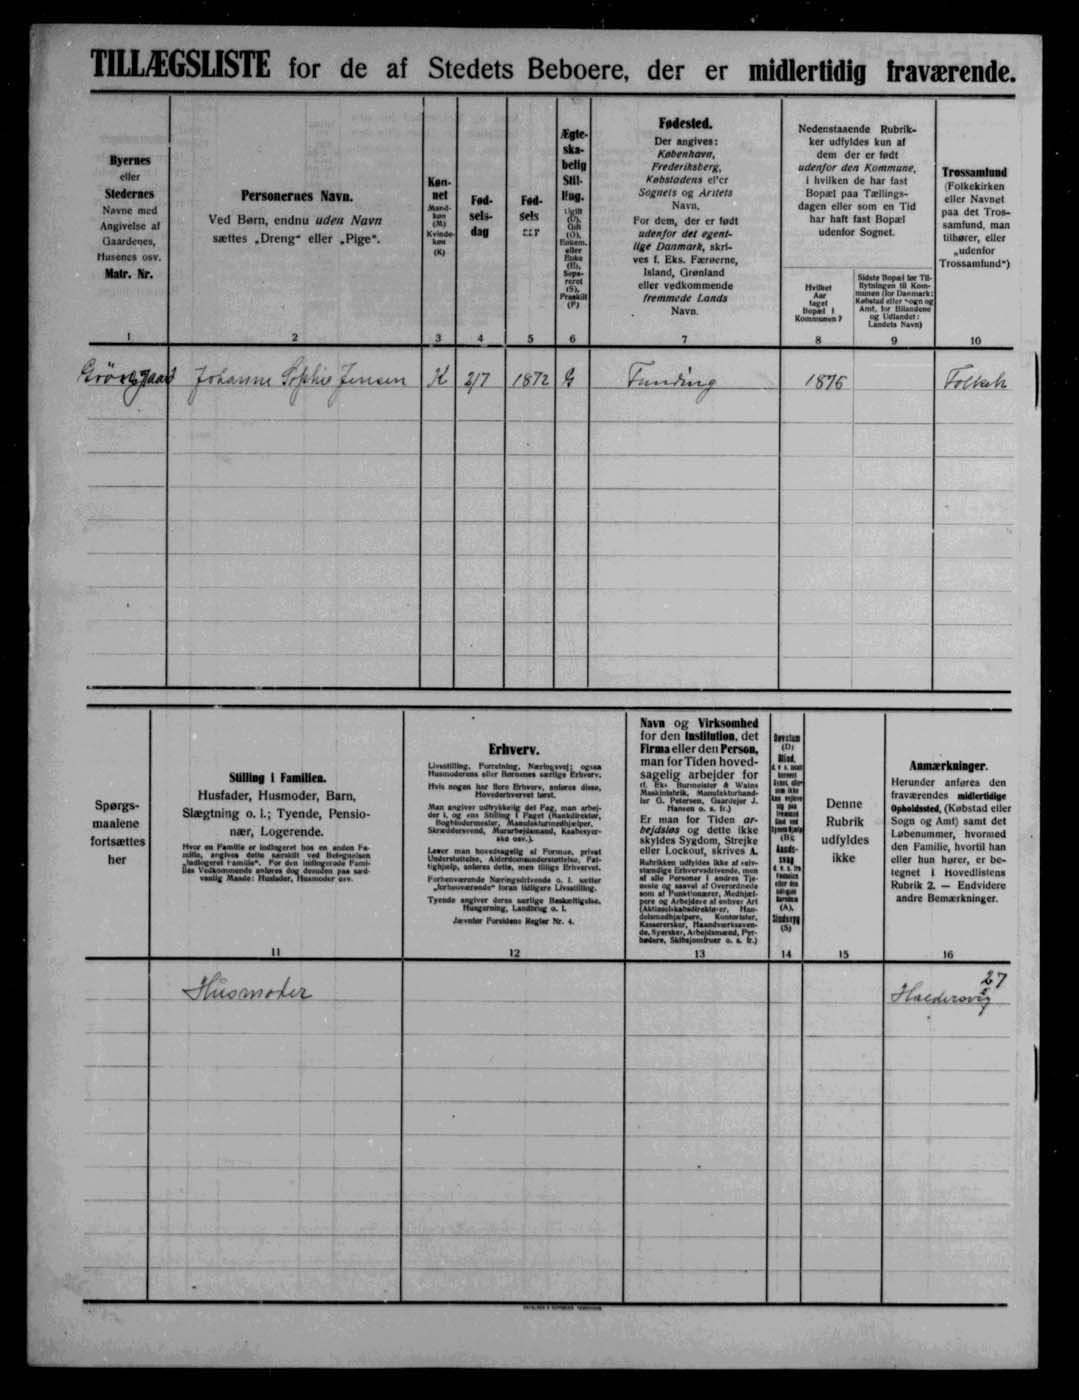 TILLÆGSLISTE for de af Stedets Beboere, der er midlertidig fraværende.
Byernes
eller
Stedernes
Navne med
Angivelse af
Gaardenes,
Husenes osv.
Matr. Nr.
1
Personernes Navn.
Ved Børn, endnu uden Navn
sættes „Dreng“ eller „Pige“.
2
Køn-
net
Mand-
køn
(M)
Kvinde-
køn
(K)
3
Fød-
sels-
dag
4
Fød-
sels
5
Ægte-
ska-
belig
Stil-
ling.
Ugift
(U),
Gift
(G),
Enkem.
eller
Enke
(E),
Sepa-
reret
(S),
Fraskilt
(F)
6
Fødested.
Der angives:
København,
Frederiksberg,
Købstadens el'er
Sognets og Amtets
Navn.
For dem, der er født
udenfor det egent-
lige Danmark, skri-
ves f. Eks. Færøerne,
Island, Grønland
eller vedkommende
fremmede Lands
Navn.
7
Nedenstaaende Rubrik-
ker udfyldes kun af
dem der er født
udenfor den Kommune,
i hvilken de har fast
Bopæl paa Tællings-
dagen eller som en Tid
har haft fast Bopæl
udenfor Sognet.
Hvilket
Aar
taget
Bopæl i
Kommunen?
8
Sidste Bopæl før Til-
flytningen til Kom-
munen (for Danmark:
Købstad eller Sogn og
Amt, for Bilandene
og Udlandet:
Landets Navn)
9
Trossamfund
(Folkekirken
eller Navnet
paa det Tros-
samfund, man
tilhører, eller
„udenfor
Trossamfund“)
10
Johanne Sophie Jensen K 2/7 1872 G Funding 1876 Folkek
Spørgs-
maalene
fortsættes
her
Stilling i Familien.
Husfader, Husmoder, Barn,
Slægtning o. l.; Tyende, Pensio-
nær, Logerende.
Hvor en Familie er indlogeret hos en anden Fa-
milie, angives dette særskilt ved Betegnelsen
„indlogeret Familie“. For den indlogerede Fami-
lies Vedkommende anføres dog desuden paa sæd-
vanlig Maade: Husfader, Husmoder osv.
11
Erhverv.
Livsstilling, Forretning, Næringsvej; ogsaa
Husmoderens eller Børnenes særlige Erhverv.
Hvis nogen har flere Erhverv, anføres disse,
Hovederhvervet først.
Man angiver udtrykkelig det Fag, man arbej-
der i, og ens Stilling i Faget (Bankdirektør,
Bogbindermester, Manufakturinedhjælper,
Skræddersvend, Murarbejdsmand, Kaabesyer-
ske osv.).
Lever man hovedsagelig af Formue, privat
Understøttelse, Alderdomsunderstøttelse, Fat-
tighjælp, anføres dette, men tillige Erhvervet.
Forhenværende Næringsdrivende o. l. sætter
„forhenværende“ foran tidligere Livsstilling.
Tyende angiver deres særlige Beskæftigelse,
Husgerning, Landbrug o. l.
Jævnfør Forsidens Regler Nr. 4.
12
Navn og Virksomhed
for den Institution, det
Firma eller den Person,
man for Tiden hoved-
sagelig arbejder for
(f. Eks Burmeister & Wains
Maskinfabrik, Manufakturhand-
ler G. Petersen, Gaardejer J.
Hansen o. s. fr.)
Er man for Tiden ar-
bejdsløs og dette ikke
skyldes Sygdom, Strejke
eller Lockout, skrives A.
Rubrikken udfyldes ikke af selv-
stændige Erhvervsdrivende, men
af alle Personer i andres Tje-
neste og saavel af Overordnede
som af Funktionærer, Medhjæl-
pere og Arbejdere af enhver Art
(Aktieselskabsdirektører, Han-
delsmedhjælpere, Kontorister,
Kassererske, Haandværkssven-
de, Syersker, Arbejdsmænd, Fyr-
bødere, Skibsjomfruer o. s. fr.)
13
Døvstum
(D)
Blind,
Aands-
svag
(A),
Sindssyg
(S)
14
Denne
Rubrik
udfyldes
ikke
15
Anmærkninger.
Herunder anføres den
fraværendes midlertidige
Opholdssted, (Købstad eller
Sogn og Amt) samt det
Løbenummer, hvormed
den Familie, hvortil han
eller hun hører, er be-
tegnet i Hovedlistens
Rubrik 2. — Endvidere
andre Bemærkninger.
16
Husmoder
27
Haldersvig